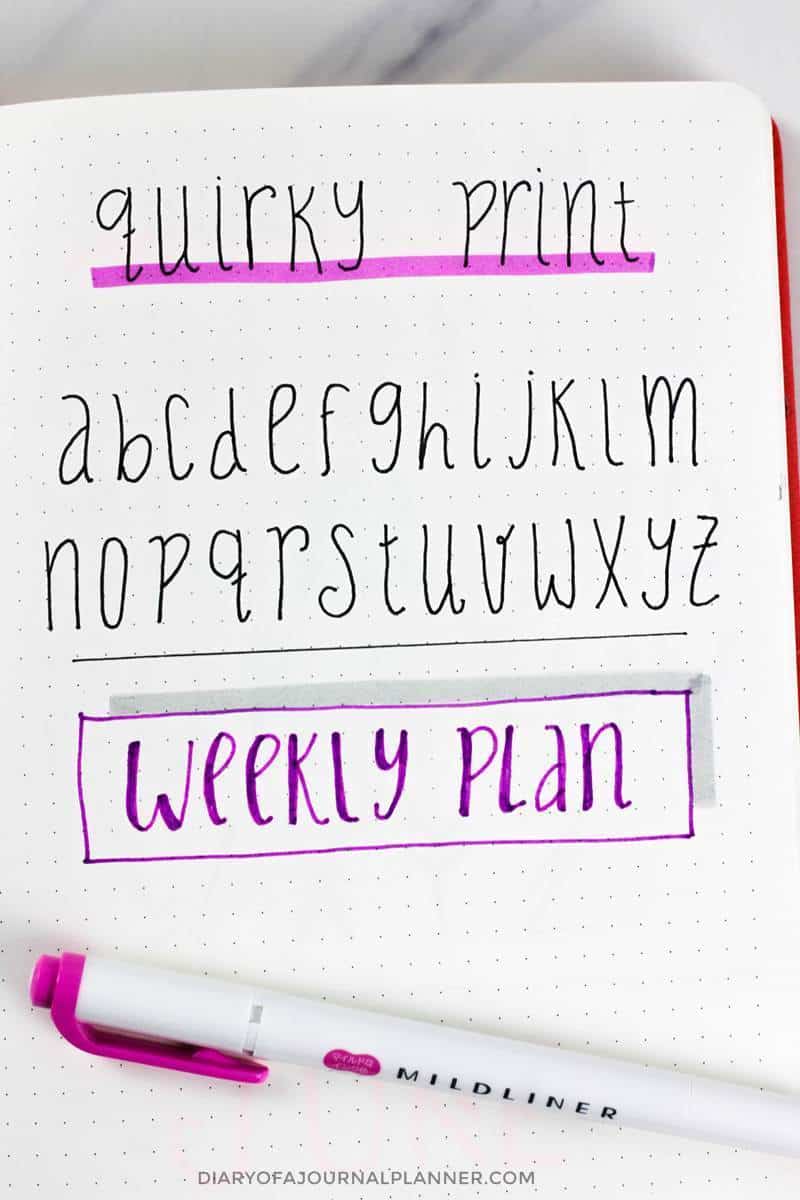 quirky print
abcdefghijklm
nopqrstuvwxyz
weekly plan
マイルドライナー
MILDLINER
DIARYOFAJOURNALPLANNER.COM